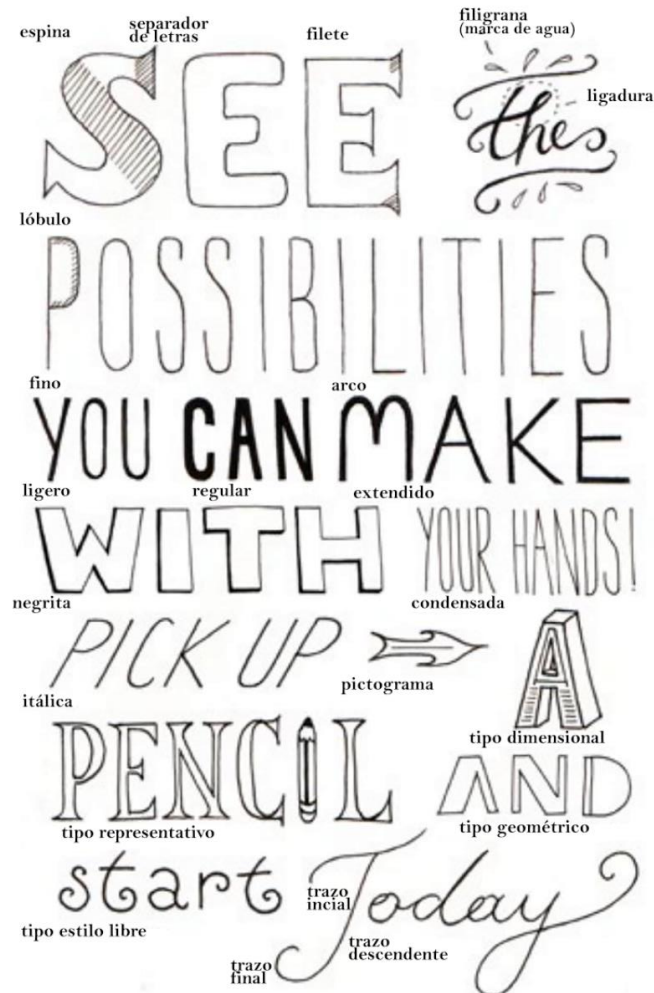 espina separador de letras filete filigrana (marca de agua)
SEE the
ligadura
lóbulo
POSSIBILITIES
fino arco
YOU CAN MAKE
ligero regular extendido
WITH YOUR HANDS!
negrita condensada
PICK UP A
itálica pictograma
tipo dimensional
PENCIL AND
tipo representativo tipo geométrico
start Today
tipo estilo libre
trazo
incial
trazo
descendente
trazo
final